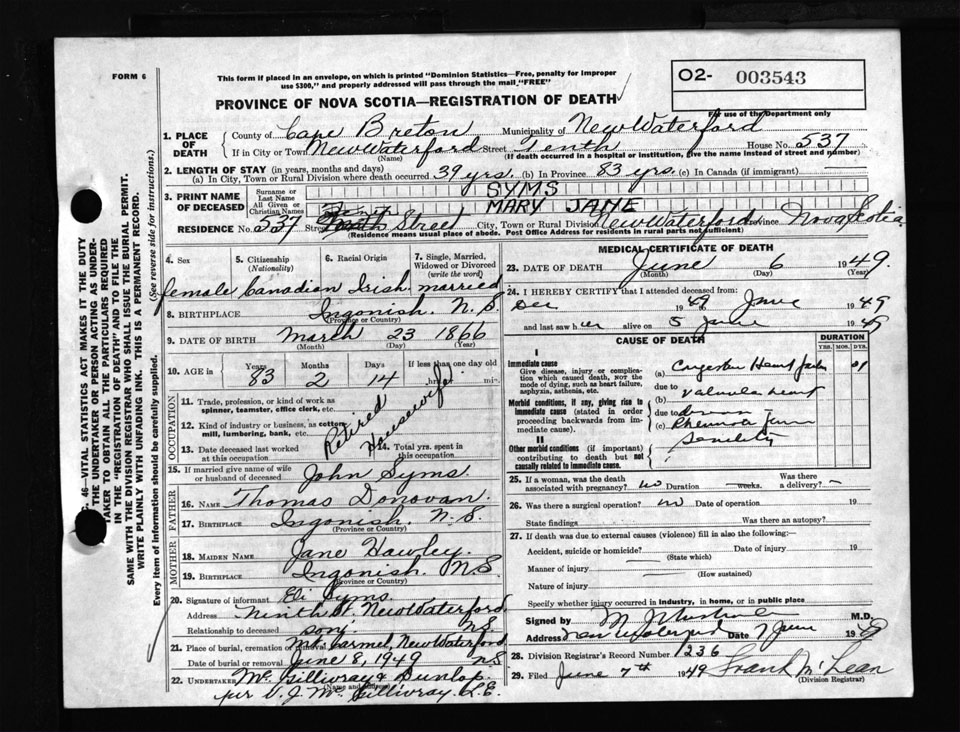 FORM 6
This form if placed in an envelope, on which is printed "Dominion Statistics—Free, penalty for improper
use $300," and properly addressed will pass through the mail "FREE"
O2- 003543
For use of the Department only
PROVINCE OF NOVA SCOTIA—REGISTRATION OF DEATH
1. PLACE OF DEATH
County of Cape Breton Municipality of New Waterford
If in City or Town New Waterford Street Tenth House No. 537
(Name) (If death occurred in a hospital or institution, give the name instead of street and number)
2. LENGTH OF STAY (in years, months and days)
(a) In City, Town or Rural Division where death occurred 39 yrs. (b) In Province 83 yrs. (c) In Canada (if immigrant)
3. PRINT NAME OF DECEASED
Surname or Last Name SYMS
All Given or Christian Names MARY JANE
RESIDENCE No. 537 Street Tenth Street City, Town or Rural Division New Waterford Province Nova Scotia
(Residence means usual place of abode. Post Office Address for residents in rural parts not sufficient)
4. Sex
female
5. Citizenship
(Nationality)
Canadian
6. Racial Origin
Irish
7. Single, Married, Widowed or Divorced
(write the word)
married
8. BIRTHPLACE Ingonish. N.S.
(Province or Country)
9. DATE OF BIRTH March 23 1866
(Month) (Day) (Year)
10. AGE in
Years Months Days If less than one day old
83 2 14 hrs. min.
OCCUPATION
11. Trade, profession, or kind of work as spinner, teamster, office clerk, etc.
12. Kind of industry or business, as cotton mill, lumbering, bank, etc.
Retired Housewife
13. Date deceased last worked at this occupation
14. Total yrs. spent in this occupation
15. If married give name of wife or husband of deceased John Syms
FATHER
16. NAME Thomas Donovan.
17. BIRTHPLACE Ingonish. N.S.
(Province or Country)
MOTHER
18. MAIDEN NAME Jane Hawley.
19. BIRTHPLACE Ingonish N.S.
(Province or Country)
20. Signature of informant Eli Syms.
Address Ninth St. New Waterford N.S.
Relationship to deceased son.
21. Place of burial, cremation or removal Mt. Carmel, New Waterford N.S.
Date of burial or removal June 8, 1949
22. UNDERTAKER McGillivray & Dunlop.
(Name and Address)
per V. J. McGillivray L.E.
MEDICAL CERTIFICATE OF DEATH
23. DATE OF DEATH June 6 1949
(Month) (Day) (Year)
24. I HEREBY CERTIFY that I attended deceased from:
Dec 1949 June 1949
and last saw her alive on 5 June 1949
CAUSE OF DEATH
DURATION
YRS. MOS. DYS.
I
Immediate cause
Give disease, injury or complication which caused death, NOT the mode of dying, such as heart failure, asphyxia, asthenia, etc.
(a)
due to
Morbid conditions, if any, giving rise to immediate cause (stated in order proceeding backwards from immediate cause).
(b)
due to
(c)
II
Other morbid conditions (if important) contributing to death but not causally related to immediate cause.
Senility
25. If a woman, was the death associated with pregnancy? no Duration weeks. Was there a delivery? —
26. Was there a surgical operation? no Date of operation 19
State findings Was there an autopsy?
27. If death was due to external causes (violence) fill in also the following:
Accident, suicide or homicide? Date of injury 19
(State which)
Manner of injury
(How sustained)
Nature of injury
Specify whether injury occurred in industry, in home, or in public place
Signed by M.D.
Address New Waterford Date 7 June 1949
28. Division Registrar's Record Number 1236
29. Filed June 7th 1949 Frank McLean
(Division Registrar)
46—VITAL STATISTICS ACT MAKES IT THE DUTY
THE UNDERTAKER OR PERSON ACTING AS UNDERTAKER
TO OBTAIN ALL THE PARTICULARS REQUIRED
IN THE "REGISTRATION OF DEATH" AND TO FILE THE
SAME WITH THE DIVISION REGISTRAR WHO SHALL ISSUE THE BURIAL PERMIT.
WRITE PLAINLY WITH UNFADING INK. THIS IS A PERMANENT RECORD.
Every item of information should be carefully supplied. (See reverse side for instructions.)